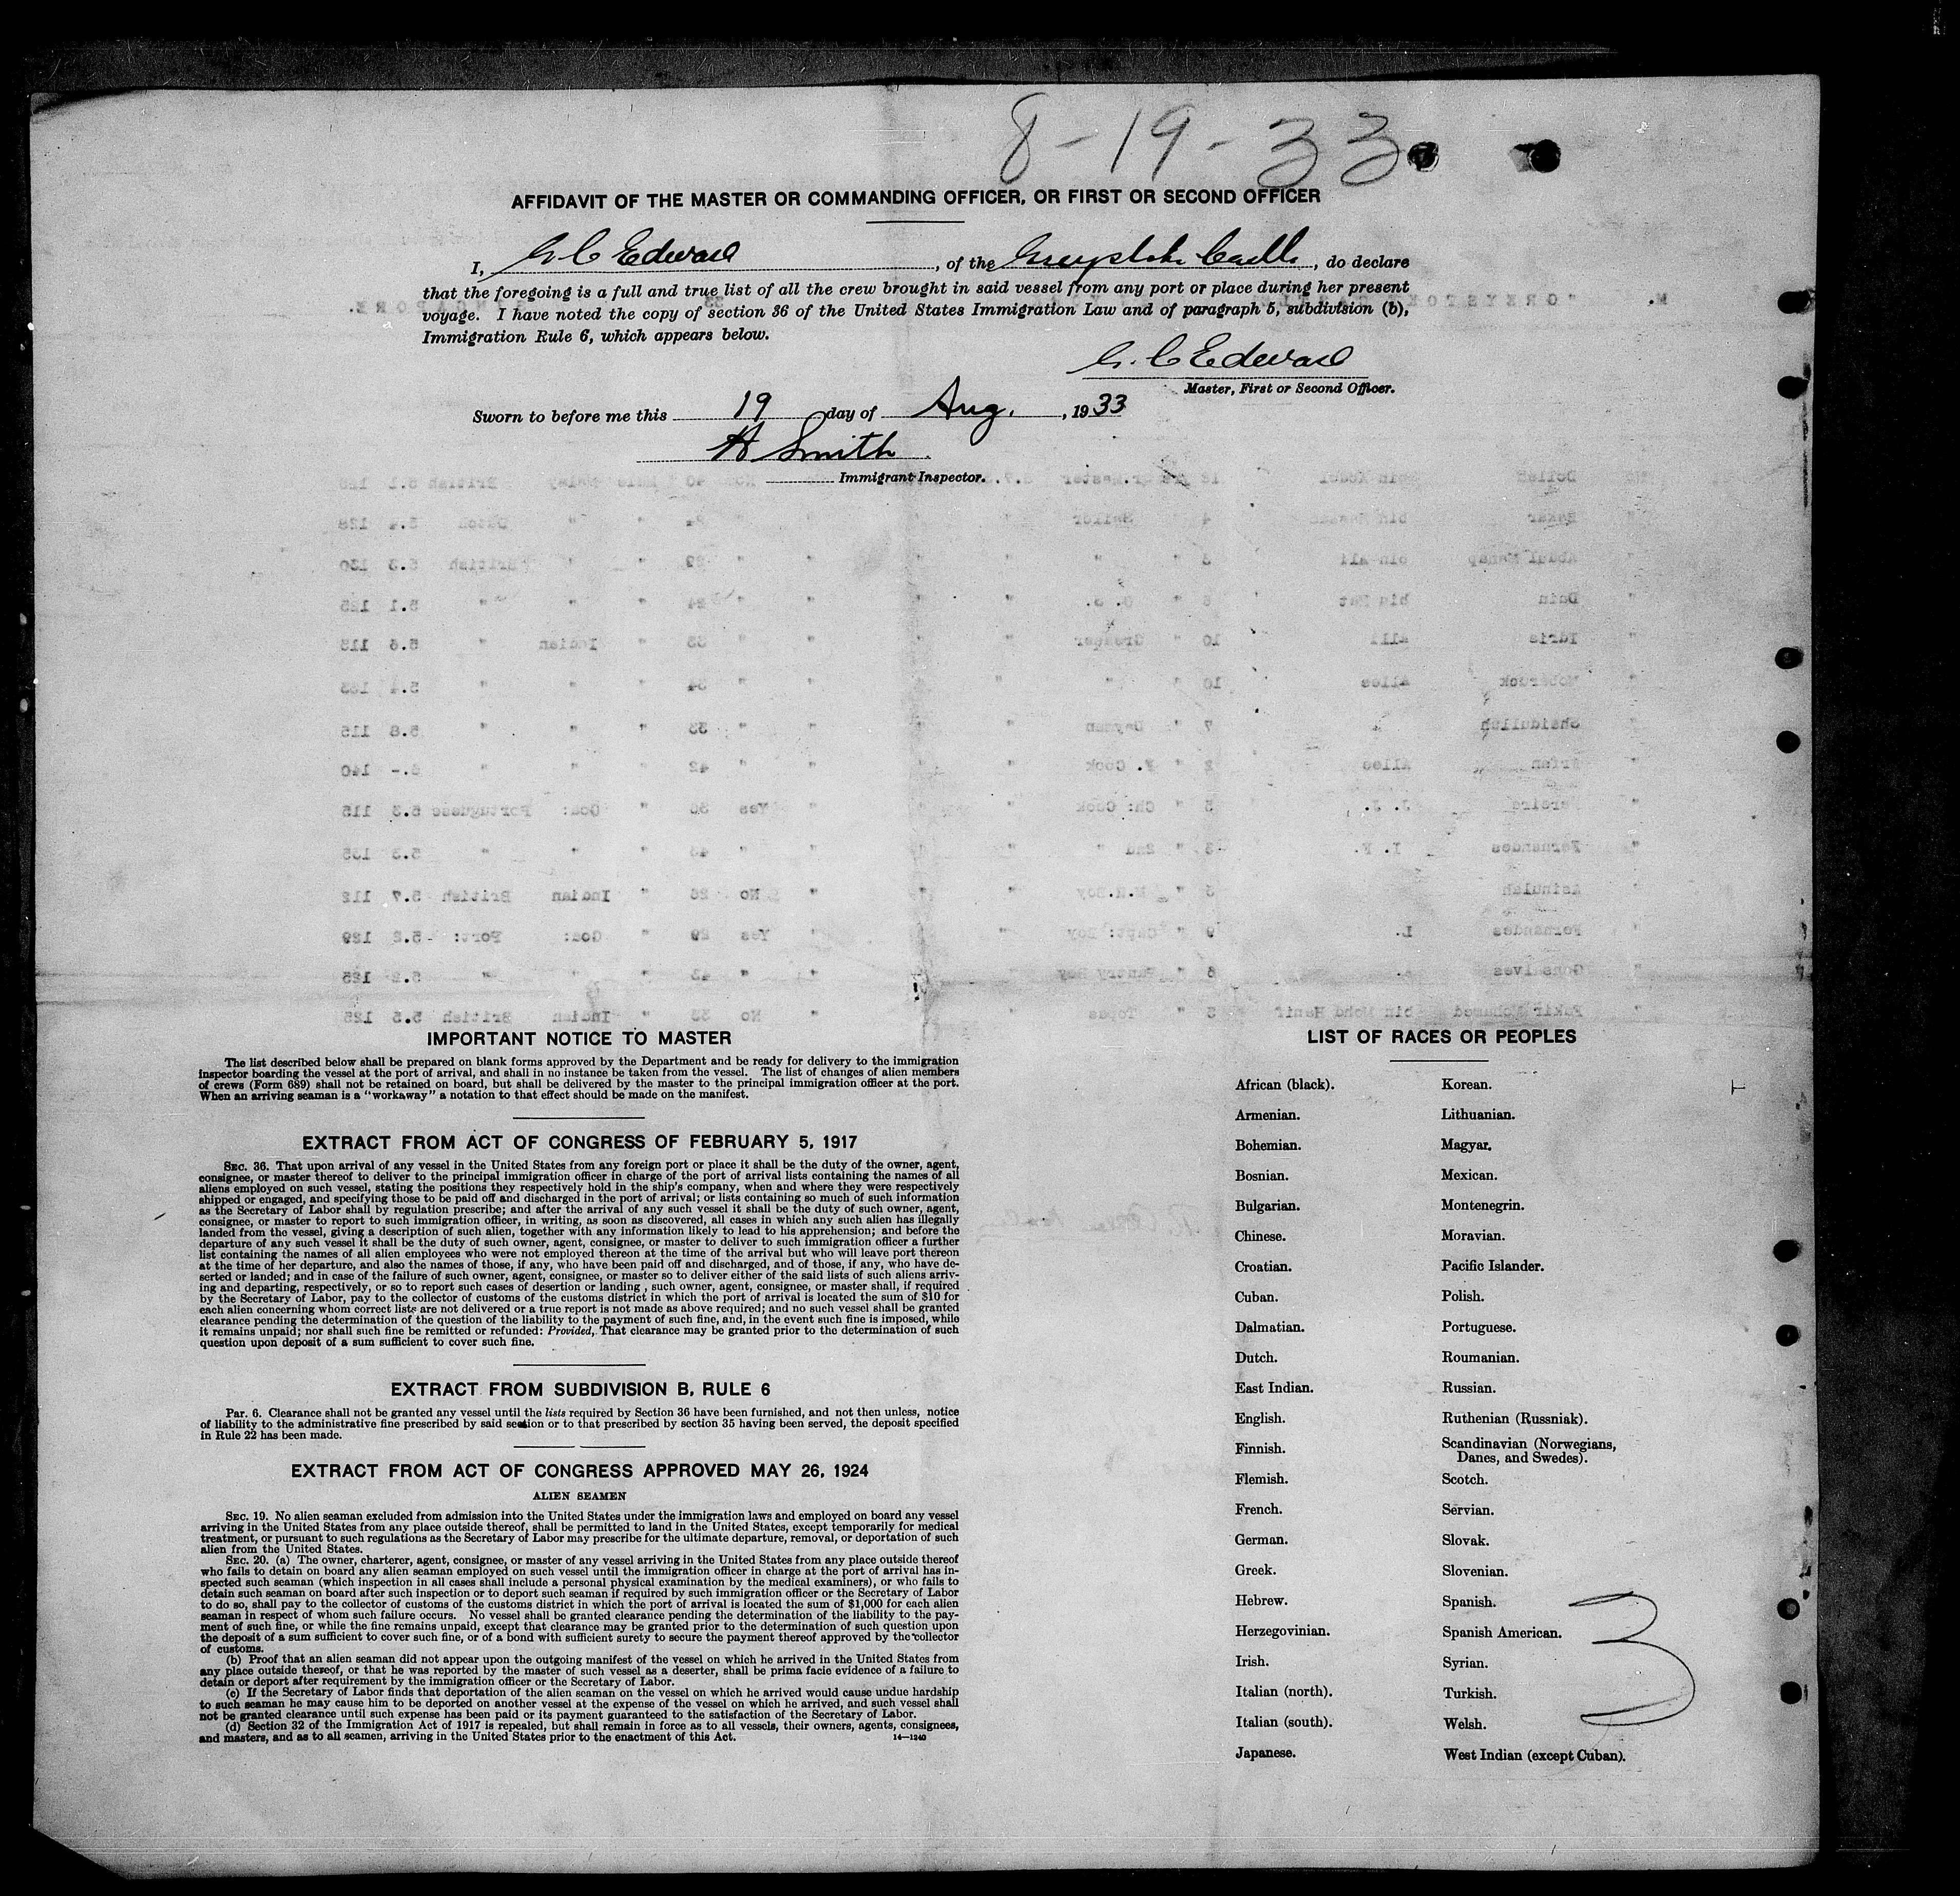 8-19-33
AFFIDAVIT OF THE MASTER OR COMMANDING OFFICER, OR FIRST OR SECOND OFFICER
I, G. C Edward, of the Greystoke Castle, do declare
that the foregoing is a full and true list of all the crew brought in said vessel from any port or place during her present
voyage. I have noted the copy of section 36 of the United States Immigration Law and of paragraph 5, subdivision (b),
Immigration Rule 6, which appears below.
G. C Edward
Master, First or Second Officer.
Sworn to before me this 19 day of Aug., 1933
H Smith
Immigrant Inspector.
IMPORTANT NOTICE TO MASTER
The list described below shall be prepared on blank forms approved by the Department and be ready for delivery to the immigration
inspector boarding the vessel at the port of arrival, and shall in no instance be taken from the vessel. The list of changes of alien members
of crews (Form 689) shall not be retained on board, but shall be delivered by the master to the principal immigration officer at the port.
When an arriving seaman is a "workaway" a notation to that effect should be made on the manifest.
EXTRACT FROM ACT OF CONGRESS OF FEBRUARY 5, 1917
SEC. 36. That upon arrival of any vessel in the United States from any foreign port or place it shall be the duty of the owner, agent,
consignee, or master thereof to deliver to the principal immigration officer in charge of the port of arrival lists containing the names of all
aliens employed on such vessel, stating the positions they respectively hold in the ship's company, when and where they were respectively
shipped or engaged, and specifying those to be paid off and discharged in the port of arrival; or lists containing so much of such information
as the Secretary of Labor shall by regulation prescribe; and after the arrival of any such vessel it shall be the duty of such owner, agent,
consignee, or master to report to such immigration officer, in writing, as soon as discovered, all cases in which any such alien has illegally
landed from the vessel, giving a description of such alien, together with any information likely to lead to his apprehension; and before the
departure of any such vessel it shall be the duty of such owner, agent, consignee, or master to deliver to such immigration officer a further
list containing the names of all alien employees who were not employed thereon at the time of the arrival but who will leave port thereon
at the time of her departure, and also the names of those, if any, who have been paid off and discharged, and of those, if any, who have de-
serted or landed; and in case of the failure of such owner, agent, consignee, or master so to deliver either of the said lists of such aliens arriv-
ing and departing, respectively, or so to report such cases of desertion or landing , such owner, agent, consignee, or master shall, if required
by the Secretary of Labor, pay to the collector of customs of the customs district in which the port of arrival is located the sum of $10 for
each alien concerning whom correct lists are not delivered or a true report is not made as above required; and no such vessel shall be granted
clearance pending the determination of the question of the liability to the payment of such fine, and, in the event such fine is imposed, while
it remains unpaid; nor shall such fine be remitted or refunded: Provided, That clearance may be granted prior to the determination of such
question upon deposit of a sum sufficient to cover such fine.
EXTRACT FROM SUBDIVISION B, RULE 6
Par. 6. Clearance shall not be granted any vessel until the lists required by Section 36 have been furnished, and not then unless, notice
of liability to the administrative fine prescribed by said section or to that prescribed by section 35 having been served, the deposit specified
in Rule 22 has been made.
EXTRACT FROM ACT OF CONGRESS APPROVED MAY 26, 1924
ALIEN SEAMEN
SEC. 19. No alien seaman excluded from admission into the United States under the immigration laws and employed on board any vessel
arriving in the United States from any place outside thereof, shall be permitted to land in the United States, except temporarily for medical
treatment, or pursuant to such regulations as the Secretary of Labor may prescribe for the ultimate departure, removal, or deportation of such
alien from the United States.
SEC. 20. (a) The owner, charterer, agent, consignee, or master of any vessel arriving in the United States from any place outside thereof
who fails to detain on board any alien seaman employed on such vessel until the immigration officer in charge at the port of arrival has in-
spected such seaman (which inspection in all cases shall include a personal physical examination by the medical examiners), or who fails to
detain such seaman on board after such inspection or to deport such seaman if required by such immigration officer or the Secretary of Labor
to do so, shall pay to the collector of customs of the customs district in which the port of arrival is located the sum of $1,000 for each alien
seaman in respect of whom such failure occurs. No vessel shall be granted clearance pending the determination of the liability to the pay-
ment of such fine, or while the fine remains unpaid, except that clearance may be granted prior to the determination of such question upon
the deposit of a sum sufficient to cover such fine, or of a bond with sufficient surety to secure the payment thereof approved by the collector
of customs.
(b) Proof that an alien seaman did not appear upon the outgoing manifest of the vessel on which he arrived in the United States from
any place outside thereof, or that he was reported by the master of such vessel as a deserter, shall be prima facie evidence of a failure to
detain or deport after requirement by the immigration officer or the Secretary of Labor.
(c) If the Secretary of Labor finds that deportation of the alien seaman on the vessel on which he arrived would cause undue hardship
to such seaman he may cause him to be deported on another vessel at the expense of the vessel on which he arrived, and such vessel shall
not be granted clearance until such expense has been paid or its payment guaranteed to the satisfaction of the Secretary of Labor.
(d) Section 32 of the Immigration Act of 1917 is repealed, but shall remain in force as to all vessels, their owners, agents, consignees,
and masters, and as to all seamen, arriving in the United States prior to the enactment of this Act.
14—1240
LIST OF RACES OR PEOPLES
African (black). Korean.
Armenian. Lithuanian.
Bohemian. Magyar.
Bosnian. Mexican.
Bulgarian. Montenegrin.
Chinese. Moravian.
Croatian. Pacific Islander.
Cuban. Polish.
Dalmatian. Portuguese.
Dutch. Roumanian.
East Indian. Russian.
English. Ruthenian (Russniak).
Finnish. Scandinavian (Norwegians,
Danes, and Swedes).
Flemish. Scotch.
French. Servian.
German. Slovak.
Greek. Slovenian.
Hebrew. Spanish.
Herzegovinian. Spanish American.
Irish. Syrian.
Italian (north). Turkish.
Italian (south). Welsh.
Japanese. West Indian (except Cuban).
3